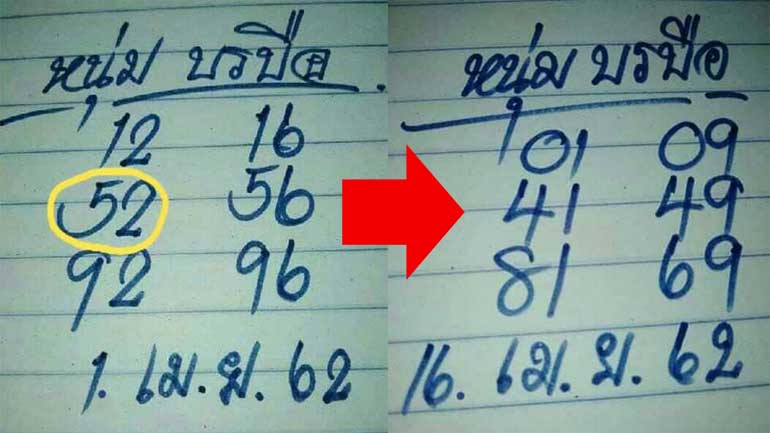 หนุ่ม บรบือ
12 16
52 56
92 96
1. เม.ย. 62
หนุ่ม บรบือ
01 09
41 49
81 69
16. เม.ย. 62